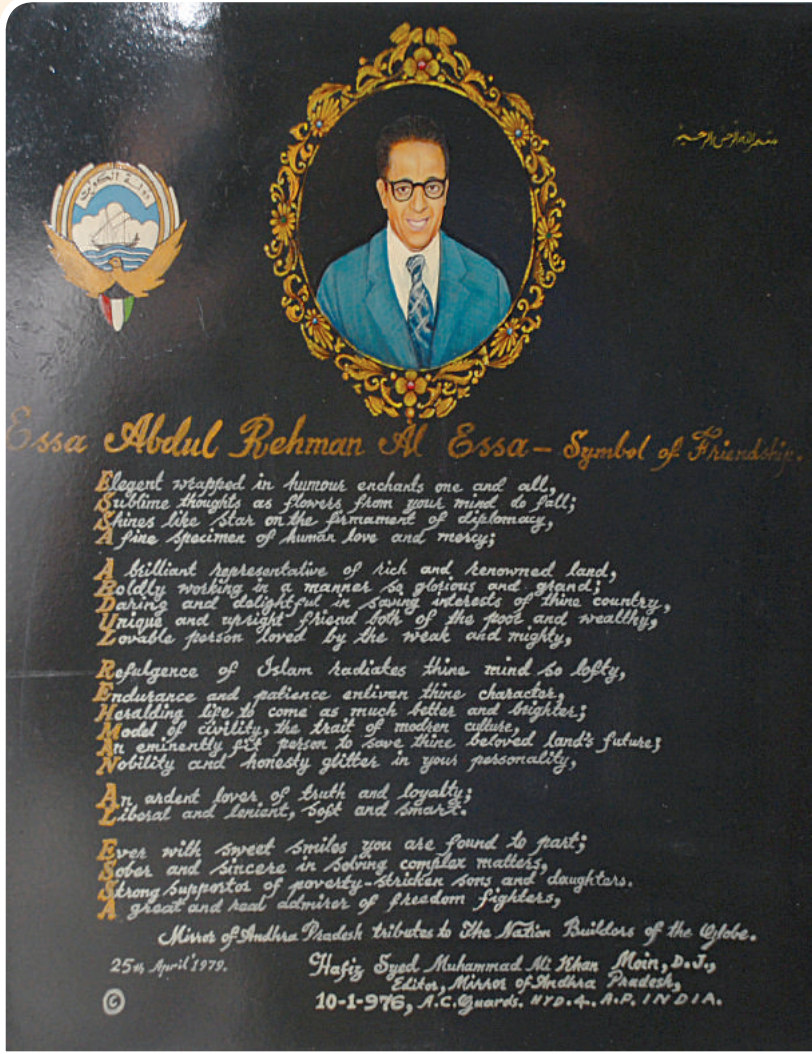 بسم الله الرحمن الرحيم
دولة الكويت
Essa Abdul Rehman Al Essa – Symbol of Friendship.
Elegent wrapped in humour enchants one and all,
Sublime thoughts as flowers from your mind do fall;
Shines like star on the firmament of diplomacy,
A fine specimen of human love and mercy;
A brilliant representative of rich and renowned land,
Boldly working in a manner so glorious and grand;
Daring and delightful in saving interests of thine country,
Unique and upright friend both of the poor and wealthy,
Lovable person loved by the weak and mighty,
Refulgence of Islam radiates thine mind so lofty,
Endurance and patience enliven thine character,
Heralding life to come as much better and brighter;
Model of civility, the trait of modren culture,
An eminently fit person to save thine beloved land's future;
Nobility and honesty glitter in your personality,
An ardent lover of truth and loyalty;
Liberal and lenient, soft and smart.
Ever with sweet smiles you are found to part;
Sober and sincere in solving complex matters,
Strong supportor of poverty-stricken sons and daughters.
A great and real admirer of freedom fighters,
Mirror of Andhra Pradesh tributes to The Nation Builders of the Globe.
25th April 1979.
Hafiz Syed Muhammad Khan Moin, D.J.,
Editor, Mirror of Andhra Pradesh,
© 10-1-976, A.C. Guards. HYD. 4. A.P. INDIA.